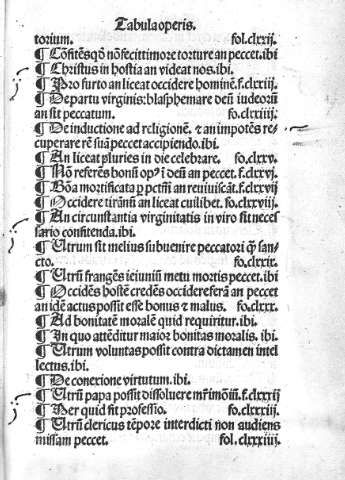 Tabula operis.
torium. fol.clxxij.
¶ Cõfitẽs qđ nõ fecit timore torture an peccet. ibi
¶ Christus in hostia an videat nos. ibi.
¶ Pro furto an liceat occidere hominẽ. f.clxxiij.
¶ De partu virginis: blasphemare deũ iudeorũ
an sit peccatum. fo.clxiiij.
¶ De inductione ad religionẽ. ⁊ an impotẽs re⸗
cuperare rẽ suã peccet accipiendo. ibi.
¶ An liceat pluries in die celebrare. fo.clxxv.
¶ Nõ referẽs bonũ op⁹ ĩ deũ an peccet. f.clxxvj.
¶ Bõa mortificata ꝑ pctm̃ an reuiuiscãt. f.clxxvij
¶ Occidere tirãnũ an liceat cuilibet. fo.clxxviij.
¶ An circunstantia virginitatis in viro sit neces
sario confitenda. ibi.
¶ Utrum sit melius subuenire peccatori q̃ san⸗
cto. fo.clxxix.
¶ Utrũ frangẽs ieiuniũ metu mortis peccet. ibi
¶ Occidẽs hostẽ credẽs occidere ferã an peccet
an idẽ actus possit esse bonus ⁊ malus. fo.clxxx.
¶ Ad bonitatẽ moralẽ quid requiritur. ibi.
¶ In quo attẽditur maior bonitas moralis. ibi.
¶ Utrum voluntas possit contra dictamen intel
lectus. ibi.
¶ De conexione virtutum. ibi.
¶ Utrũ papa possit dissoluere mr̃imoĩũ. f.clxxxij
¶ Per quid sit professio. fo.clxxxiij.
¶ Utrũ clericus tẽpore interdicti non audiens
missam peccet. fol.clxxxiiij.